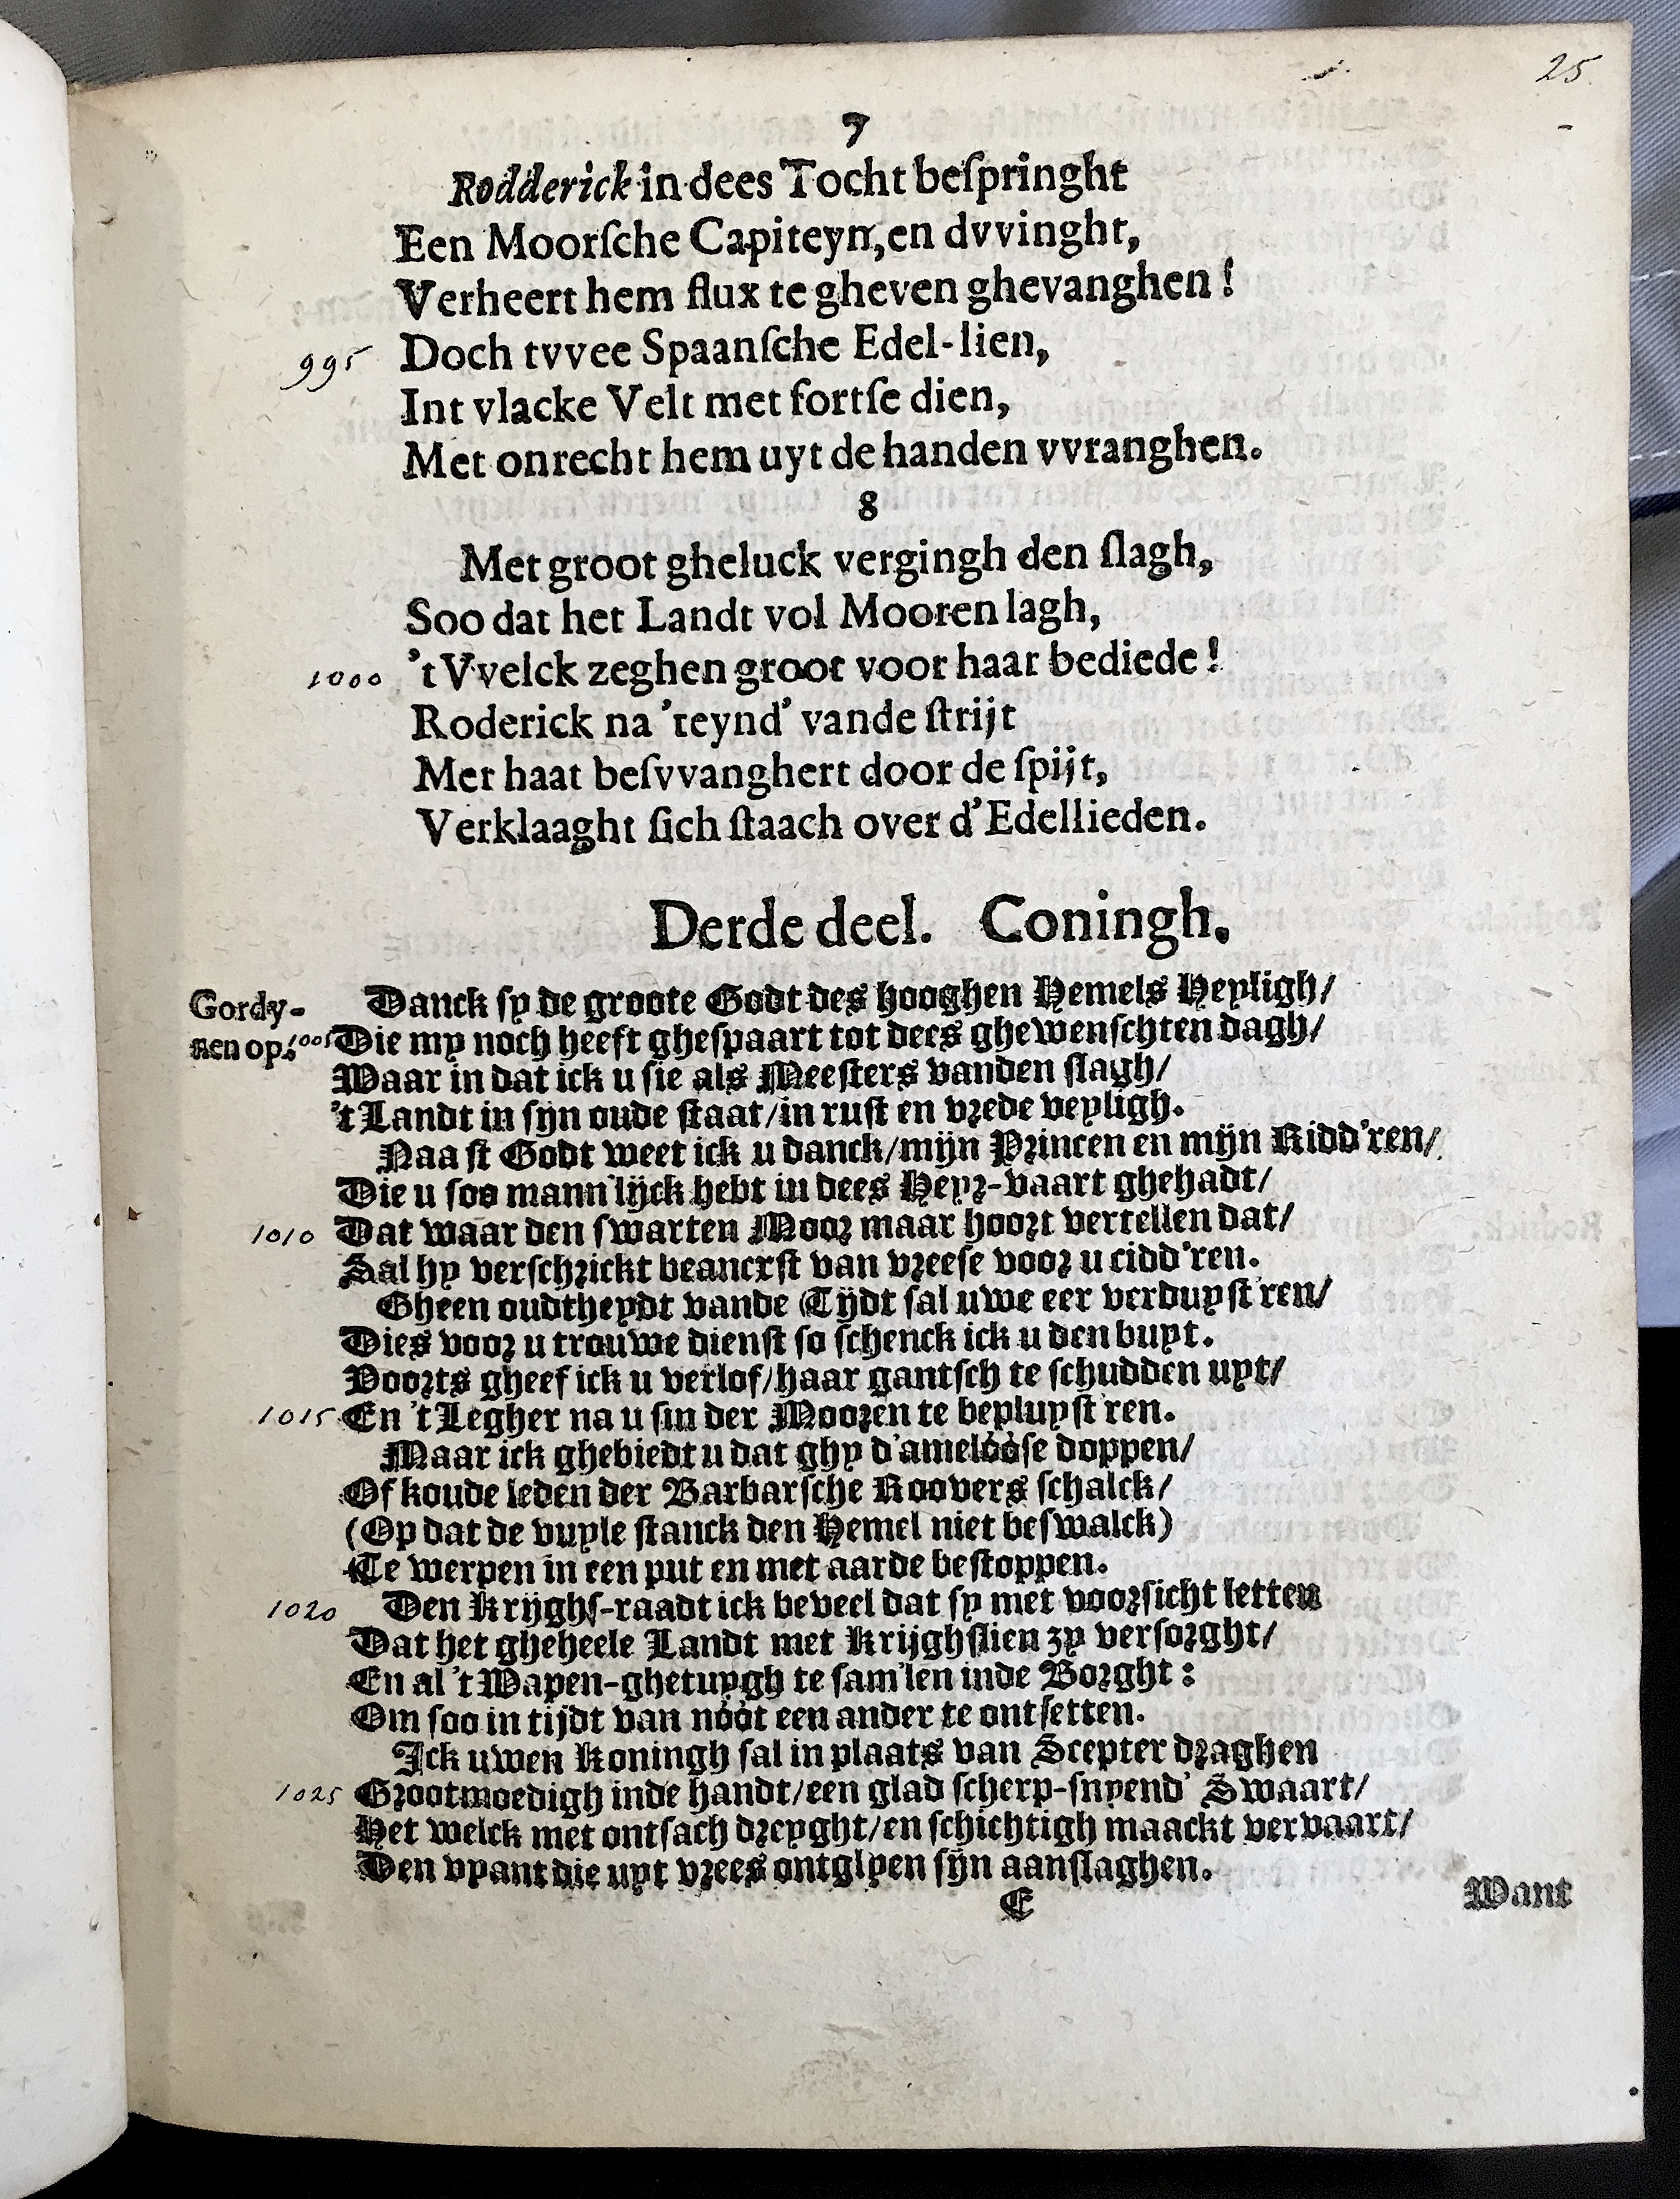 25
7
Rodderick in dees Tocht beſpringht
Een Moorſche Capiteyn, en dvvinght,
Verheert hem flux te gheven ghevanghen!
995 Doch tvvee Spaanſche Edel-lien,
Int vlacke Velt met fortſe dien,
Met onrecht hem uyt de handen vvranghen.
8
Met groot gheluck vergingh den ſlagh,
Soo dat het Landt vol Mooren lagh,
1000 't Vvelck zeghen groot voor haar bediede!
Roderick na 'teynd' vande ſtrijt
Met haat beſvvanghert door de ſpijt,
Verklaaght ſich ſtaach over d'Edellieden.
Derde deel. Coningh.
Gordy-
nen op.
Danck ſy de groote Godt des hooghen Hemels Heyligh/
1005 Die my noch heeft gheſpaart tot dees ghewenſchten dagh/
Waar in dat ick u ſie als Meeſters vanden ſlagh/
't Landt in ſijn oude ſtaat/in ruſt en vrede veyligh.
Naaſt Godt weet ick u danck/mijn Princen en mijn Ridd'ren/
Die u ſoo mann'lijck hebt in dees Heyr-vaart ghehadt/
1010 Dat waar den ſwarten Moor maar hoort vertellen dat/
Sal hy verſchrickt beancxſt van vreeſe voor u cidd'ren.
Gheen oudtheydt vande Tijdt ſal uwe eer verduyſt'ren/
Dies voor u trouwe dienſt ſo ſchenck ick u den buyt.
Voorts gheef ick u verlof/haar gantſch te ſchudden uyt/
1015 En 't Legher na u ſin der Mooren te bepluyſt'ren.
Maar ick ghebiedt u dat ghy d'amelóóſe doppen/
Of koude leden der Barbarſche Roovers ſchalck/
(Op dat de vuyle ſtanck den Hemel niet beſwalck)
Te werpen in een put en met aarde beſtoppen.
1020 Den Krijghſ-raadt ick beveel dat ſy met voorſicht letten
Dat het gheheele Landt met Krijghſlien zy verſorght/
En al 't Wapen-ghetuygh te ſam'len inde Borght:
Om ſoo in tijdt van nóót een ander te ontſetten.
Ick uwen Koningh ſal in plaats van Scepter draghen
1025 Grootmoedigh inde handt/een glad ſcherp-ſnyend' Swaart/
Het welck met ontſach dreyght/en ſchichtigh maackt vervaart/
Den vyant die uyt vrees ontglyen ſijn aanſlaghen.
E
Want